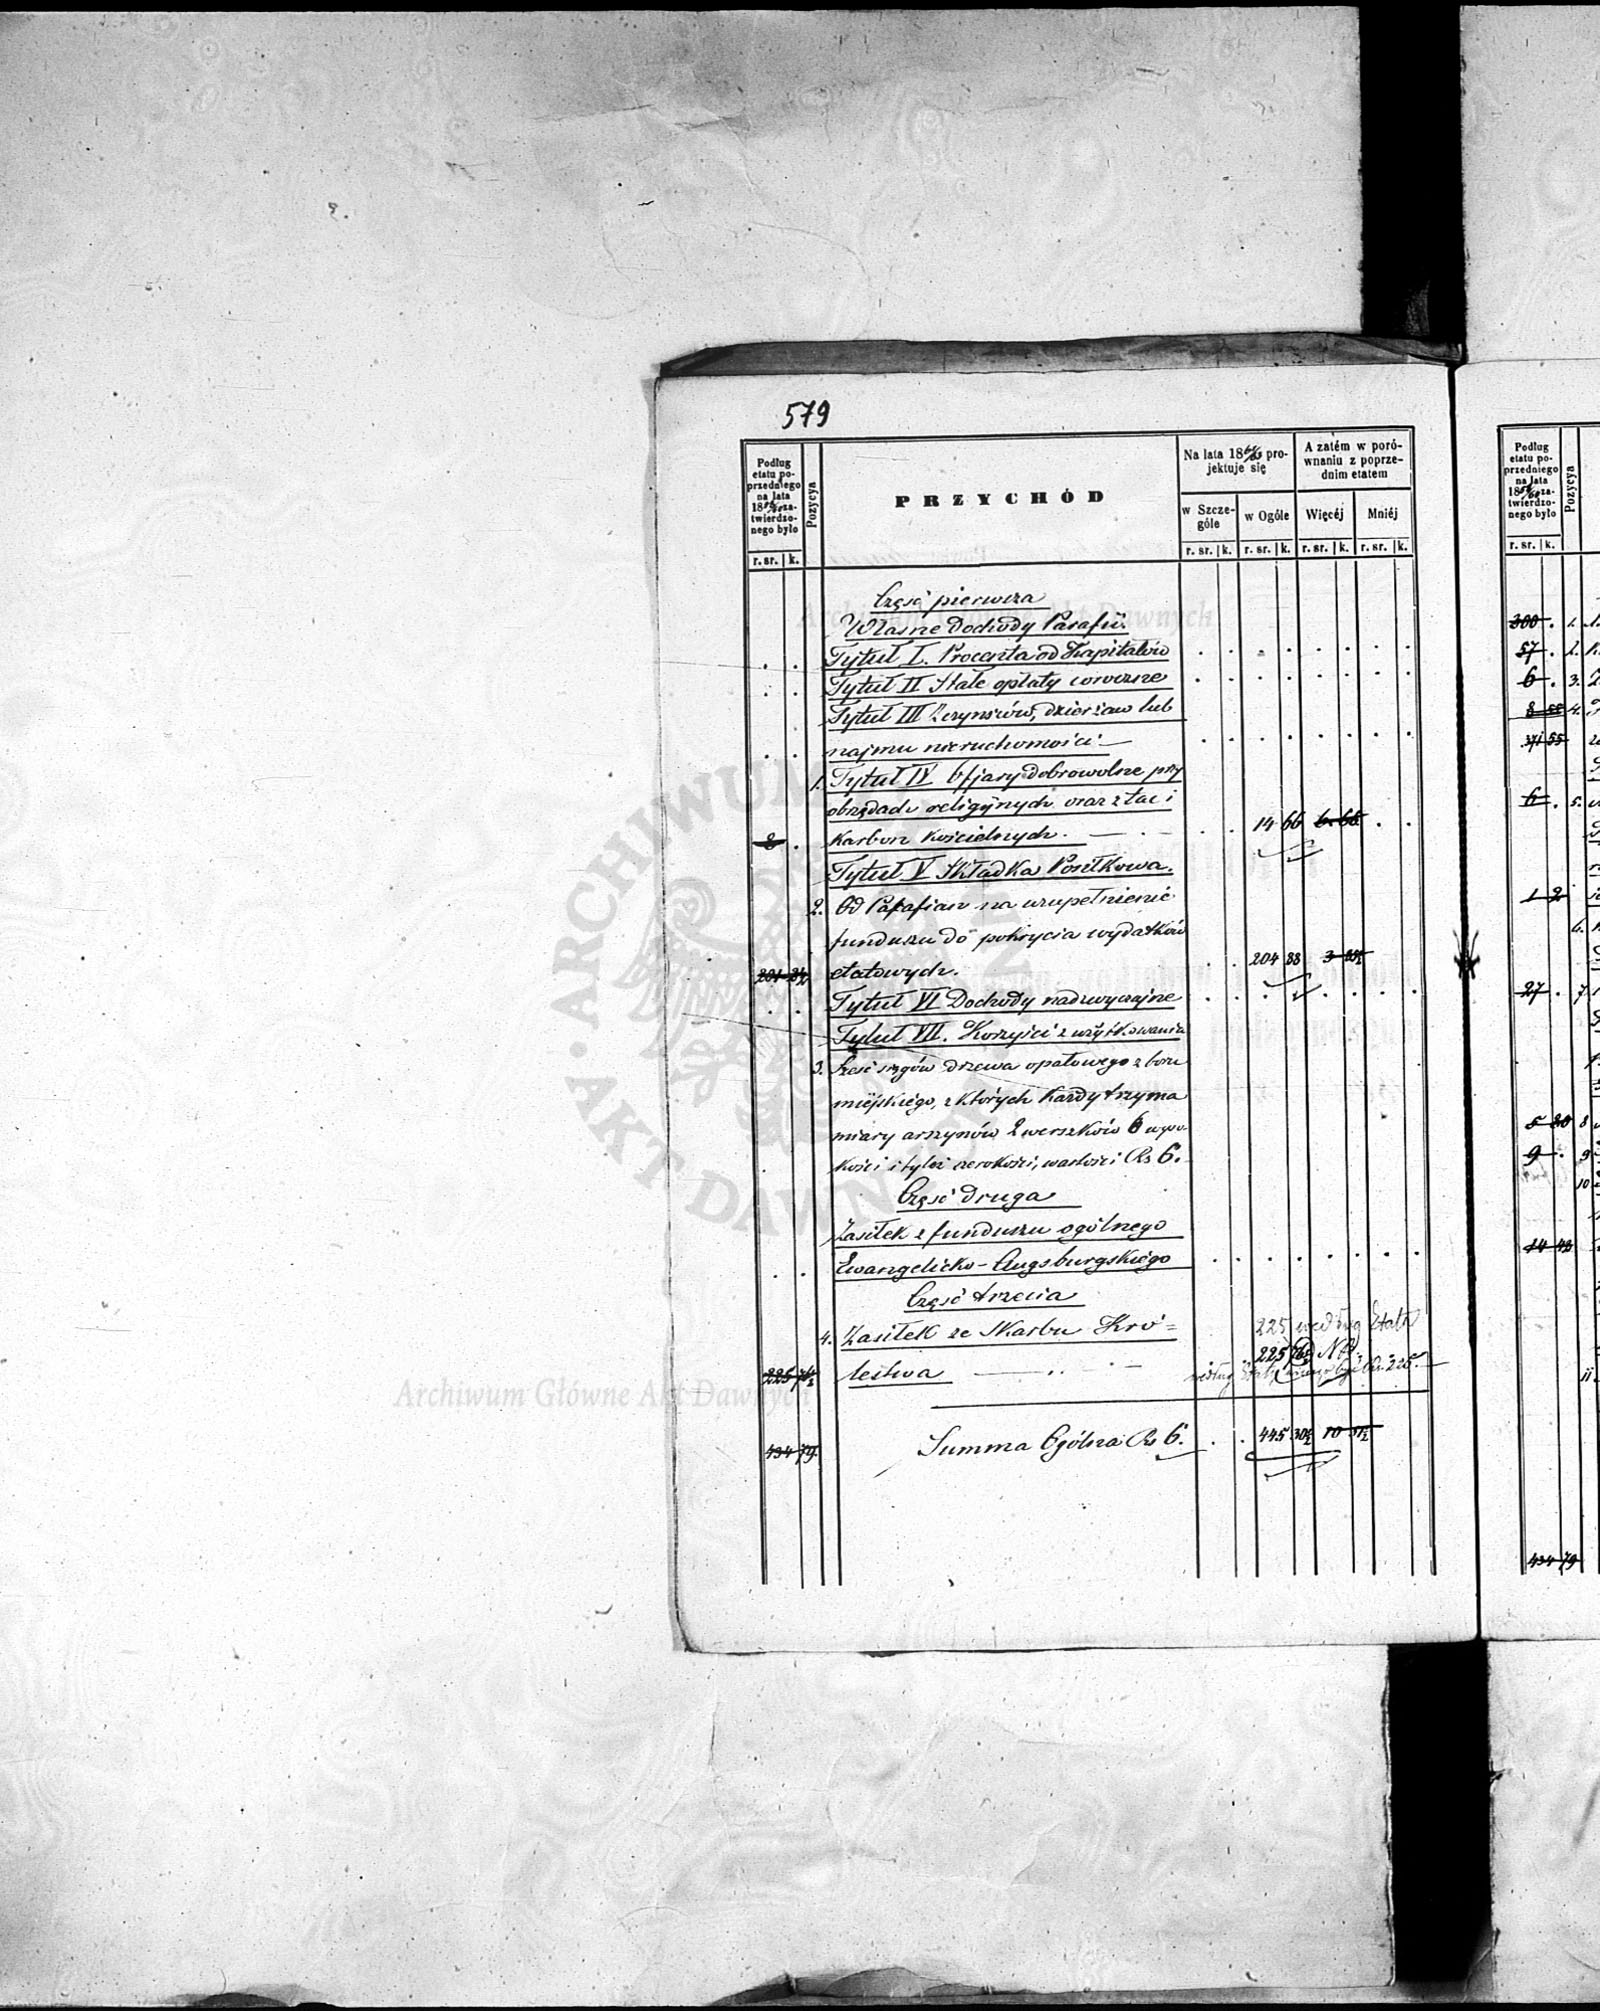 579
Podług etatu poprzedniego na lata 18 zatwierdzonego było
Pozycya
PRZYCHÓD
Na lata 18 projektuje się
A zatém w porównaniu z poprzednim etatem
w Szczególe
w Ogóle
Więcéj
Mniéj
r. sr. k. r. sr. k. r. sr. k. r. sr. k. r. sr. k.
Część pierwsza
Własne Dochody Parafii.
Tytuł I. Procenta od Kapitałów
Tytuł II Stałe opłaty coroczne
Tytuł III Z czynszów, dzierżaw lub
najmu nieruchomości
1. Tytuł IV Ofjary dobrowolne przy
obrzędach religijnych oraz z tac i
8 . karbon kościelnych. 14 66 6 66
Tytuł V Składka Posiłkowa.
2. Od Parafian na uzupełnienie
funduszu do pokrycia wydatków
201 etatowych. 204 88 3
Tytuł VI Dochody nadzwyczajne
Tytuł VII. Korzyści z użytkowania
3. Sześć sągów drzewa opałowego z boru
miéjskiego, z których każdy trzyma
miary arszynów 2 werszków 6 wyso-
kości i tyleż szerokości, wartości Rs 6.
Część druga
Zasiłek z funduszu ogólnego
Ewangelicko-Augsburgskiégo
Część trzecia
225 według Etatu
4. Zasiłek ze Skarbu Kró=
225 76½ lestwa 225 76½
według Etatu Rs. 225.
434 79. Summa Ogólna Rs 6. 445 30½ 10 51½
Podług etatu poprzedniego na lata 18 zatwierdzonego było
Pozycya
r. sr. k.
300 . 1.
57 . 2.
6 . 3.
8 55 4.
371 55
6 . 5.
1 2
6.
27 . 7.
5 80 8
9 . 9
10
14 43
11
434 79
Archiwum Główne Akt Dawnych
ARCHIWUM GŁÓWNE AKT DAWNYCH
Archiwum Główne Akt Dawnych